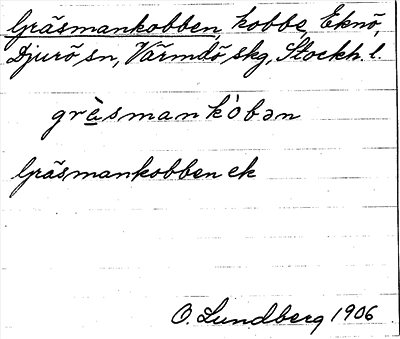 Gräsmankobben, kobbe, Eknö,
Djurö sn, Värmdö skg, Stockh. l.
grὲsmankòbən
Gräsmankobben ek
O. Lundberg 1906